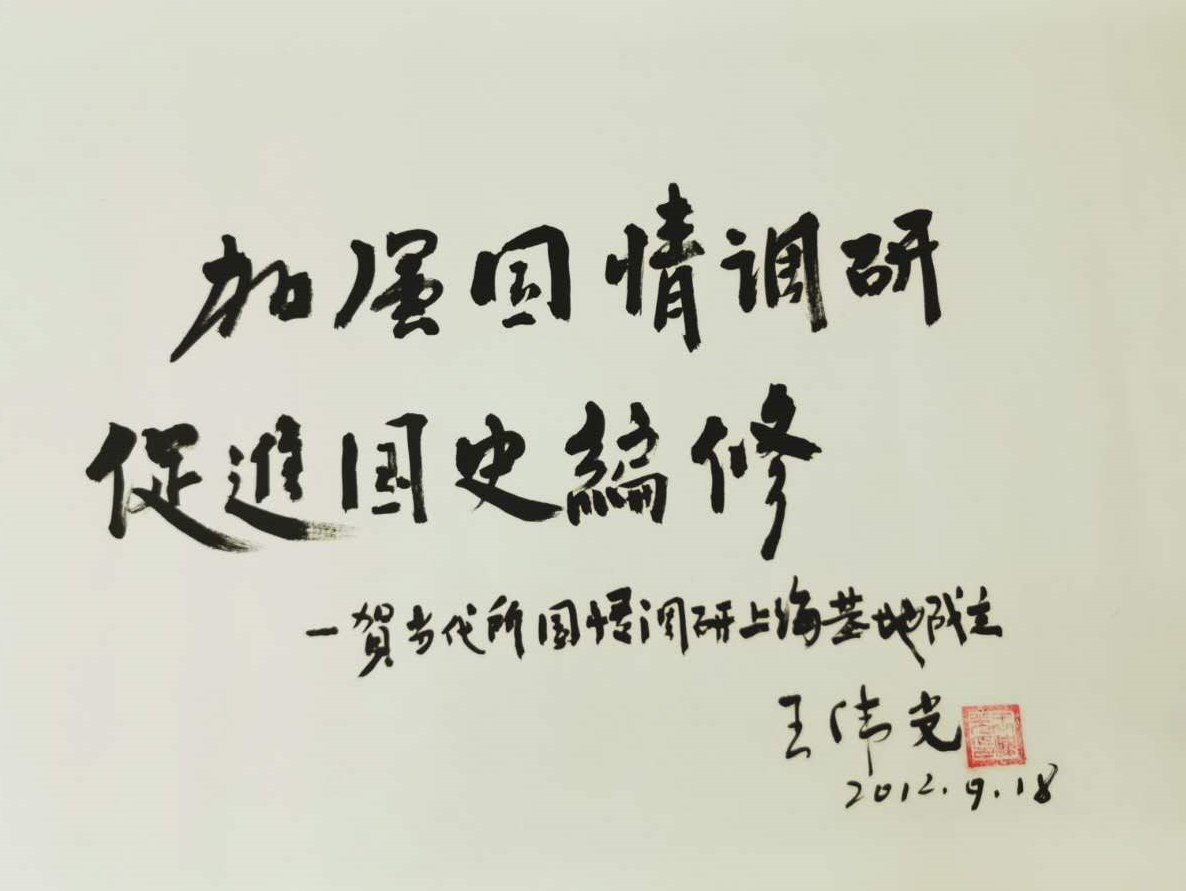 加强国情调研
促進国史編修
—賀当代所国情调研上海基地成立
王伟光
2012.9.18